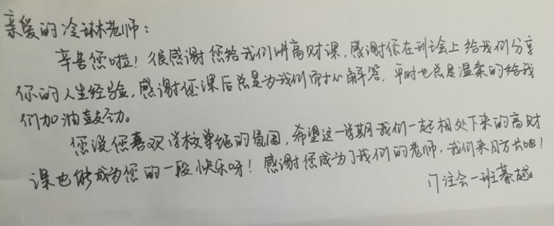 亲爱的冷琳老师：
辛苦您啦！很感谢您给我们讲高财课，感谢你在班会上给我们分享
你的人生经验，感谢您课后总是为我们耐心解答，平时也总是温柔的给我
们加油鼓劲。
您说您喜欢学校草地的氛围，希望这一学期我们一起相处下来的高财
课也能成为您的一段快乐呀！感谢您成为了我们的老师，我们来日方长吧！
注会一班